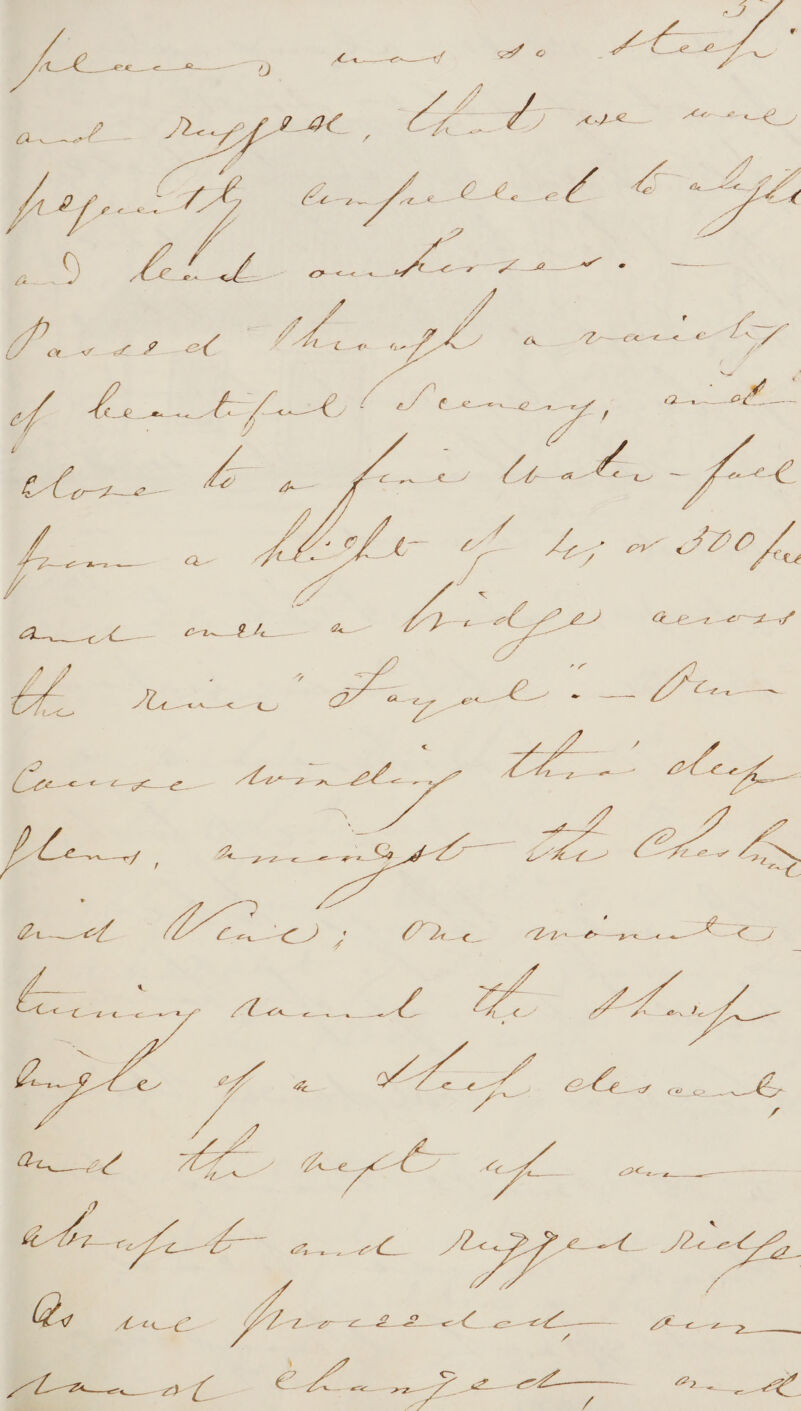 places was so steep
and rugged, that we were
frequently compelled to alight
and lead our horses. —
Passed through a variety
of beautiful Scenery, and
close to a fine Water-fall
from a height of or 300 feet
and over a bridge across
the river "Fayal". — Our
Course winding thro' deep
glens, amongst the Chestnut
and Vine; One minute
turning round the sharp
angle of a steep descent,
and the next up an
abrupt and rugged ridge
As we proceeded, our
road changed, and